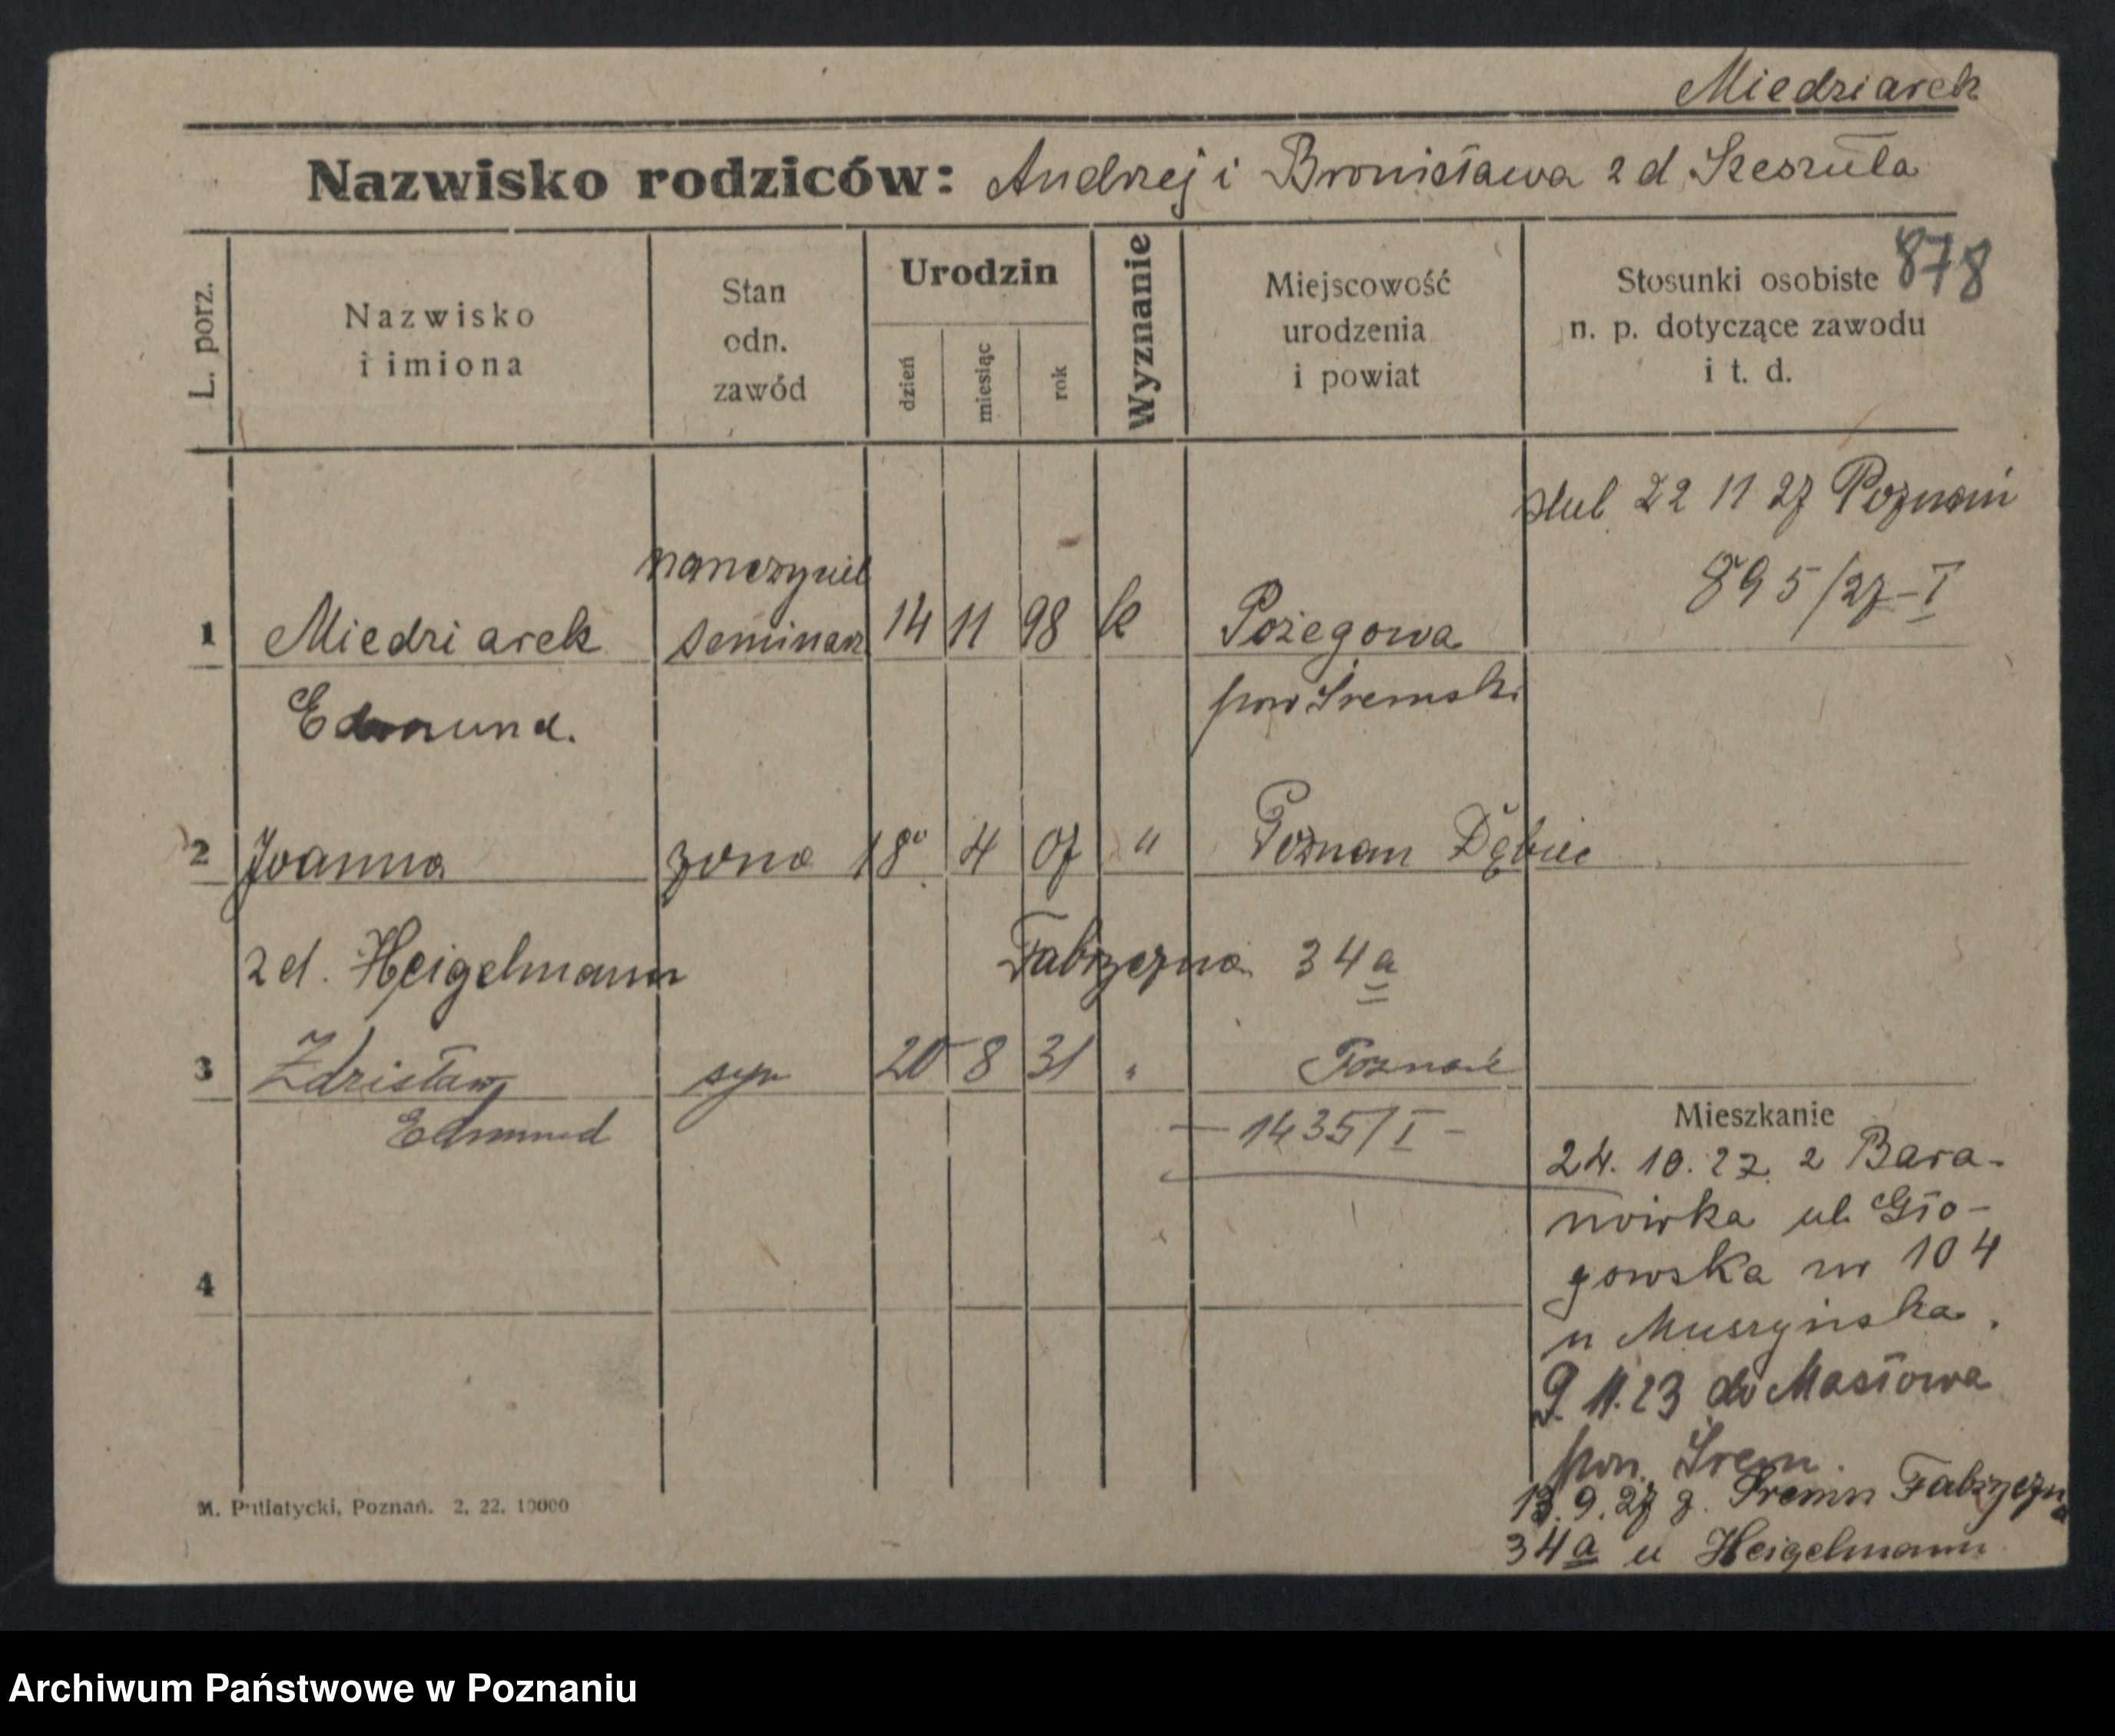 Miedziarek
Nazwisko rodziców: Andrzej i Bronisława z d Szeszuła
878
L. porz.
Nazwisko
i imiona
Stan
odn.
zawód
Urodzin
dzień
miesiąc
rok
Wyznanie
Miejscowość
urodzenia
i powiat
Stosunki osobiste
n. p. dotyczące zawodu
i t. d.
ślub 22 11 27 Poznań
895/27-I
nauczyciel
1 Miedziarek seminar 14 11 98 k Pożegowa
Edmund. pow Śremski
2 Joanna żona 18 4 07 " Poznan Dębiec
z d. Heigelmann Fabryczna 34a
3 Zdzisław syn 20 8 31 " Poznań
Edmund — 1435/I —
Mieszkanie
24. 10. 22 z Bara-
nówka ul. Gło-
gowska nr 104
u Muszyńska.
9. 11. 23 do Masłowa
pow. Śrem.
13. 9. 27 z Śremu Fabryczna
34a u Heigelmann
4
M. Putiatycki, Poznań. 2. 22. 10000
Archiwum Państwowe w Poznaniu